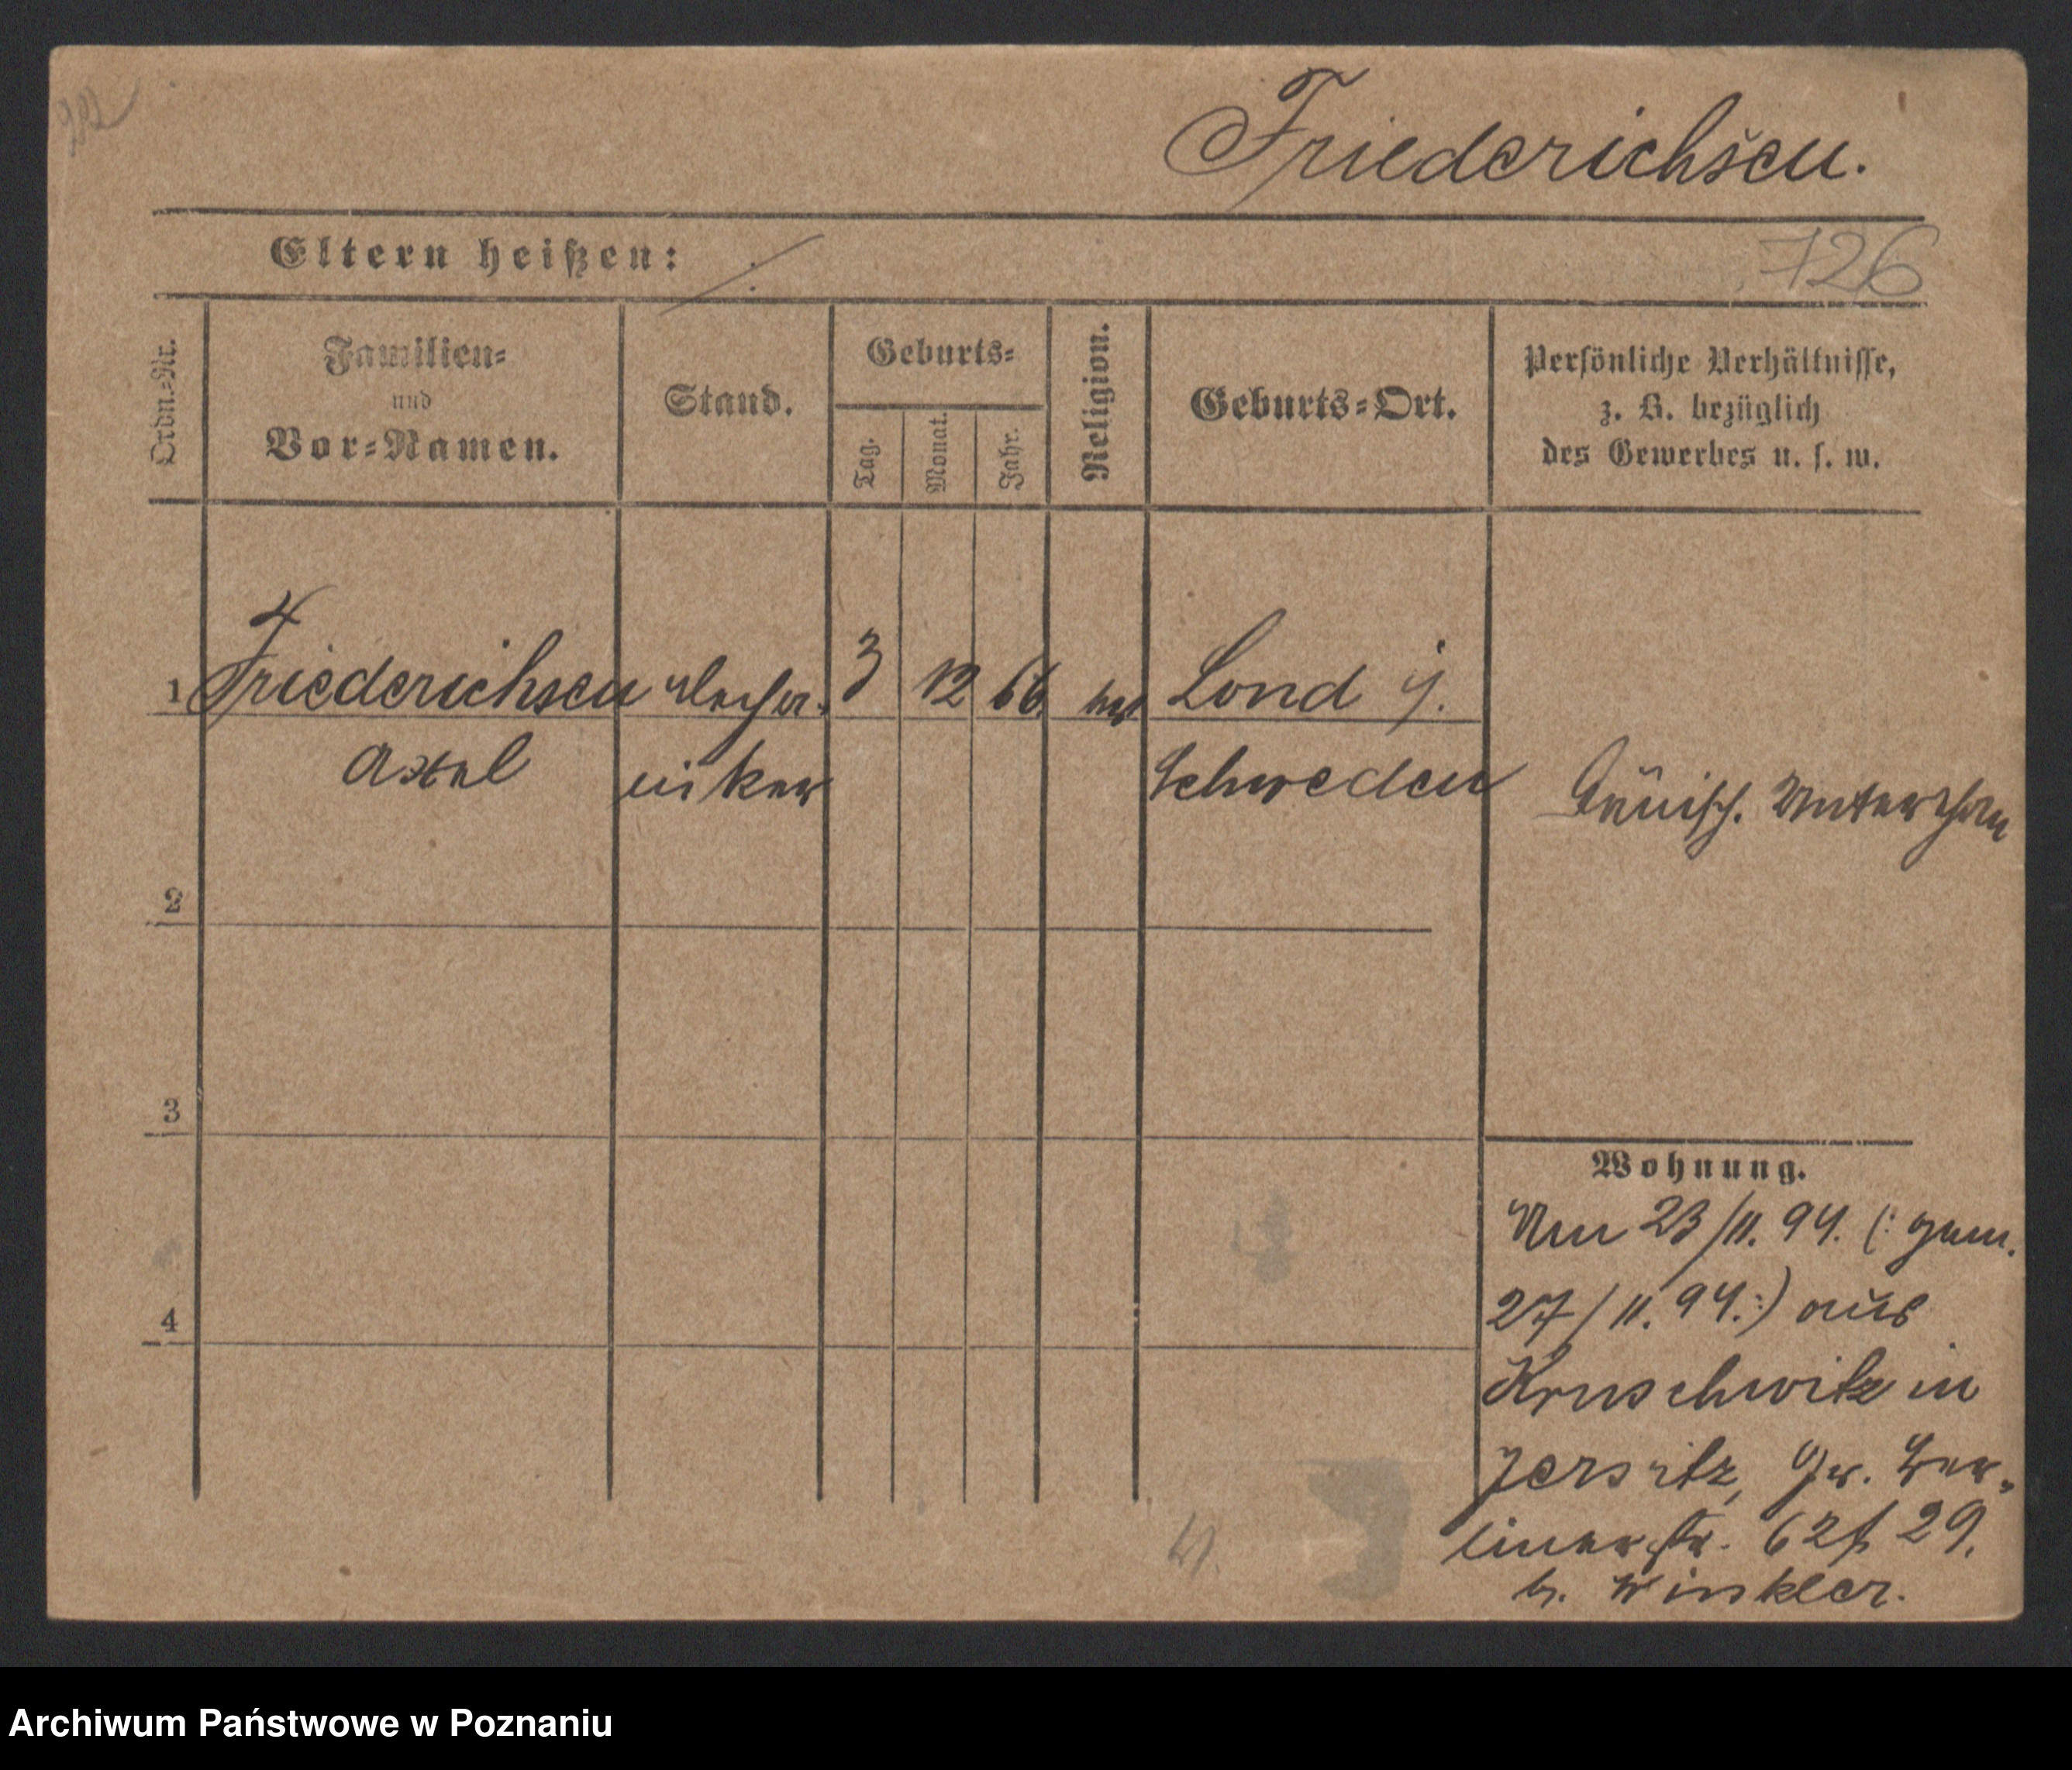 Friederichsen.
Eltern heißen:
726
Ordn.-Nr.
Familien-
und
Vor-Namen.
Stand.
Geburts-
Tag.
Monat.
Jahr.
Religion.
Geburts-Ort.
Persönliche Verhältnisse,
z. B. bezüglich
des Gewerbes u. s. w.
1 Friederichsen 3 12 66 Lond i.
Axel Schweden
Dänisch. Unterthan
2
3
4
Wohnung.
Am 23/11. 94. (: gem.
27/11. 94.:) aus
Kruschwitz in
Jersitz, Gr. Ber-
linerstr. 29.
b. Winkler.
Archiwum Państwowe w Poznaniu